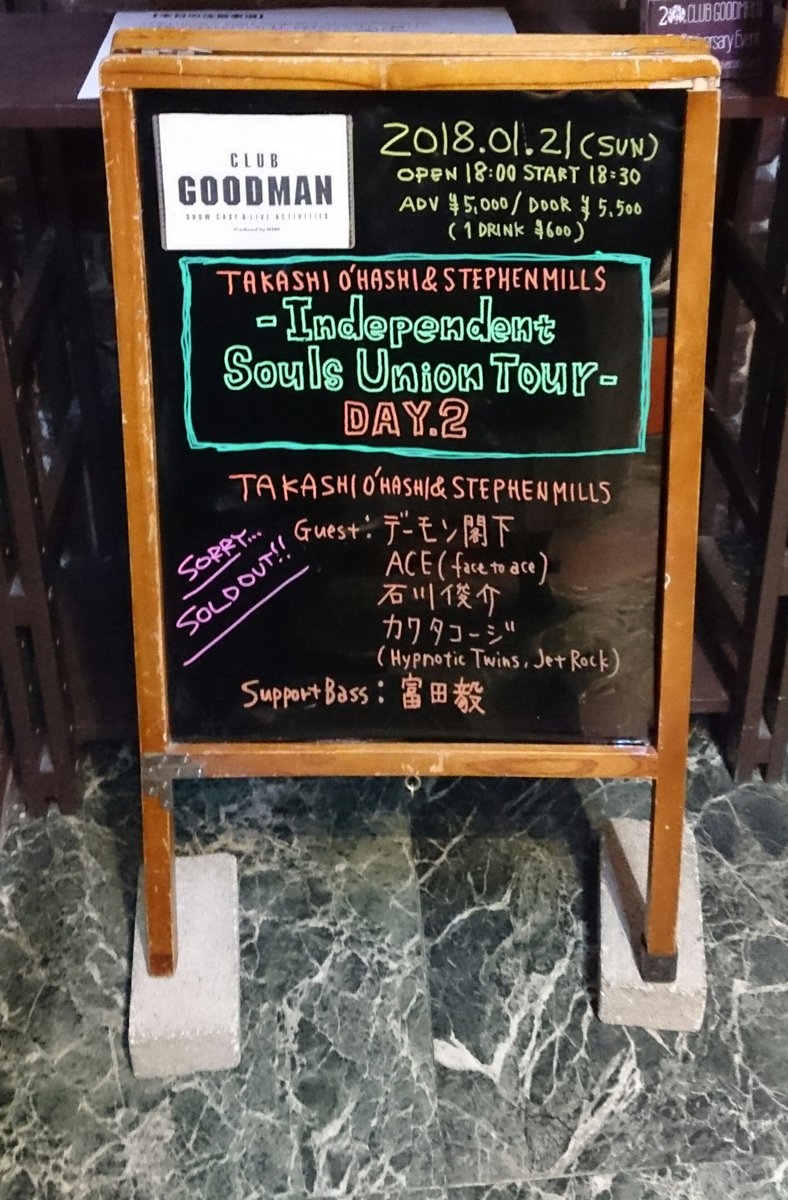 2 CLUB GOODMAN
CLUB
GOODMAN
SHOW CASE & LIVE ACTIVITIES
2018.01.21 (SUN)
OPEN 18:00 START 18:30
ADV ¥5,000 / DOOR ¥5,500
(1 DRINK ¥600)
TAKASHI O'HASHI & STEPHEN MILLS
-Independent
Souls Union Tour-
DAY.2
TAKASHI O'HASHI & STEPHEN MILLS
Guest: デーモン閣下
ACE (face to ace)
石川俊介
カワタコージ
(Hypnotic Twins, Jet Rock)
Support Bass: 富田毅
SORRY...
SOLD OUT!!